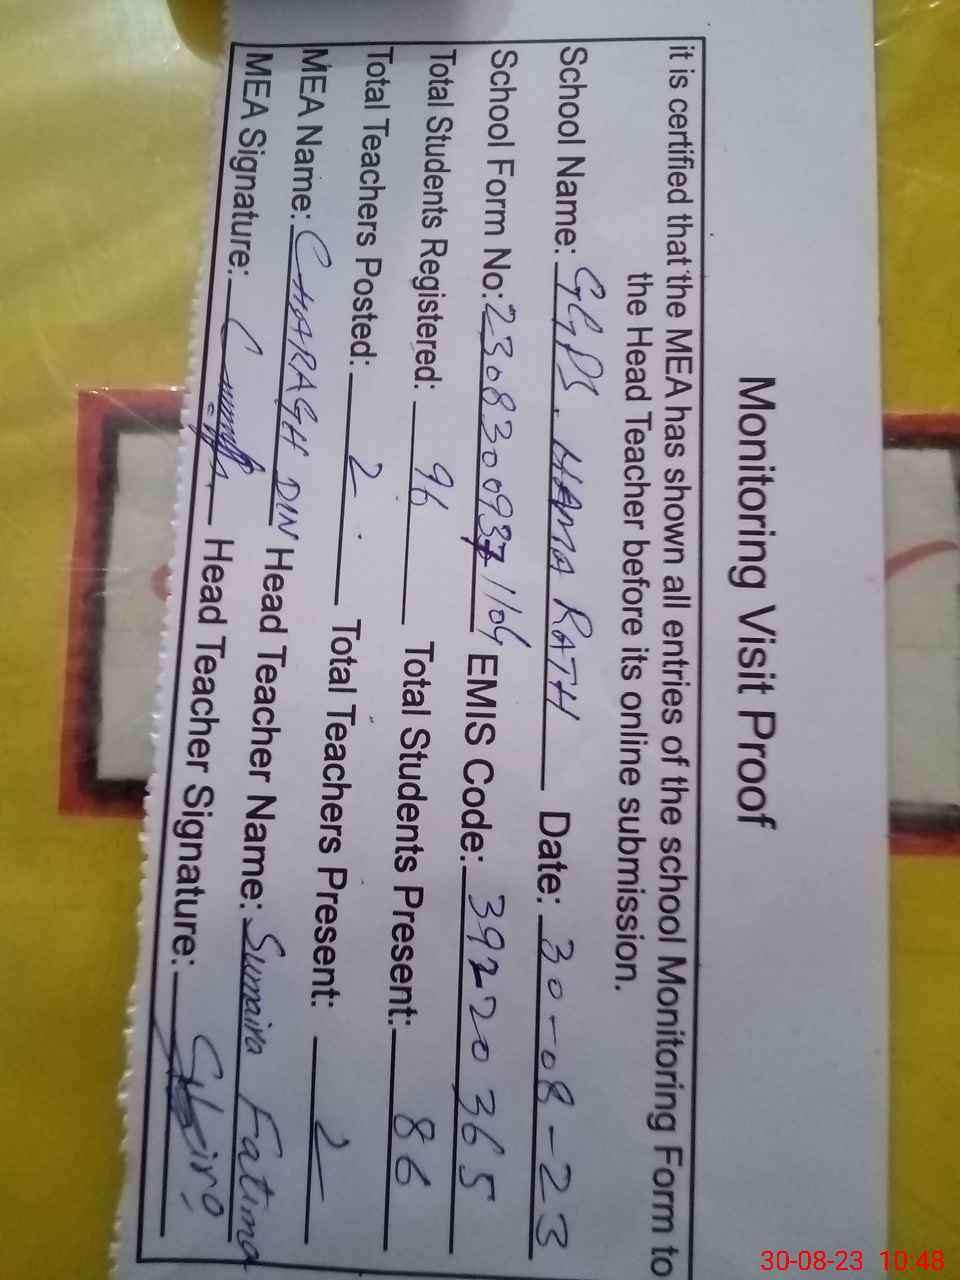 Monitoring Visit Proof
it is certified that the MEA has shown all entries of the school Monitoring Form to
the Head Teacher before its online submission.
School Name: GGPS. HAMA RATH Date: 30-08-23
School Form No: 23083009371104 EMIS Code: 39220365
Total Students Registered: 96 Total Students Present: 86
Total Teachers Posted: 2 Total Teachers Present: 2
MEA Name: CHARAGH DIN Head Teacher Name: Sumaira Fatima
MEA Signature: Head Teacher Signature:
30-08-23 10:48